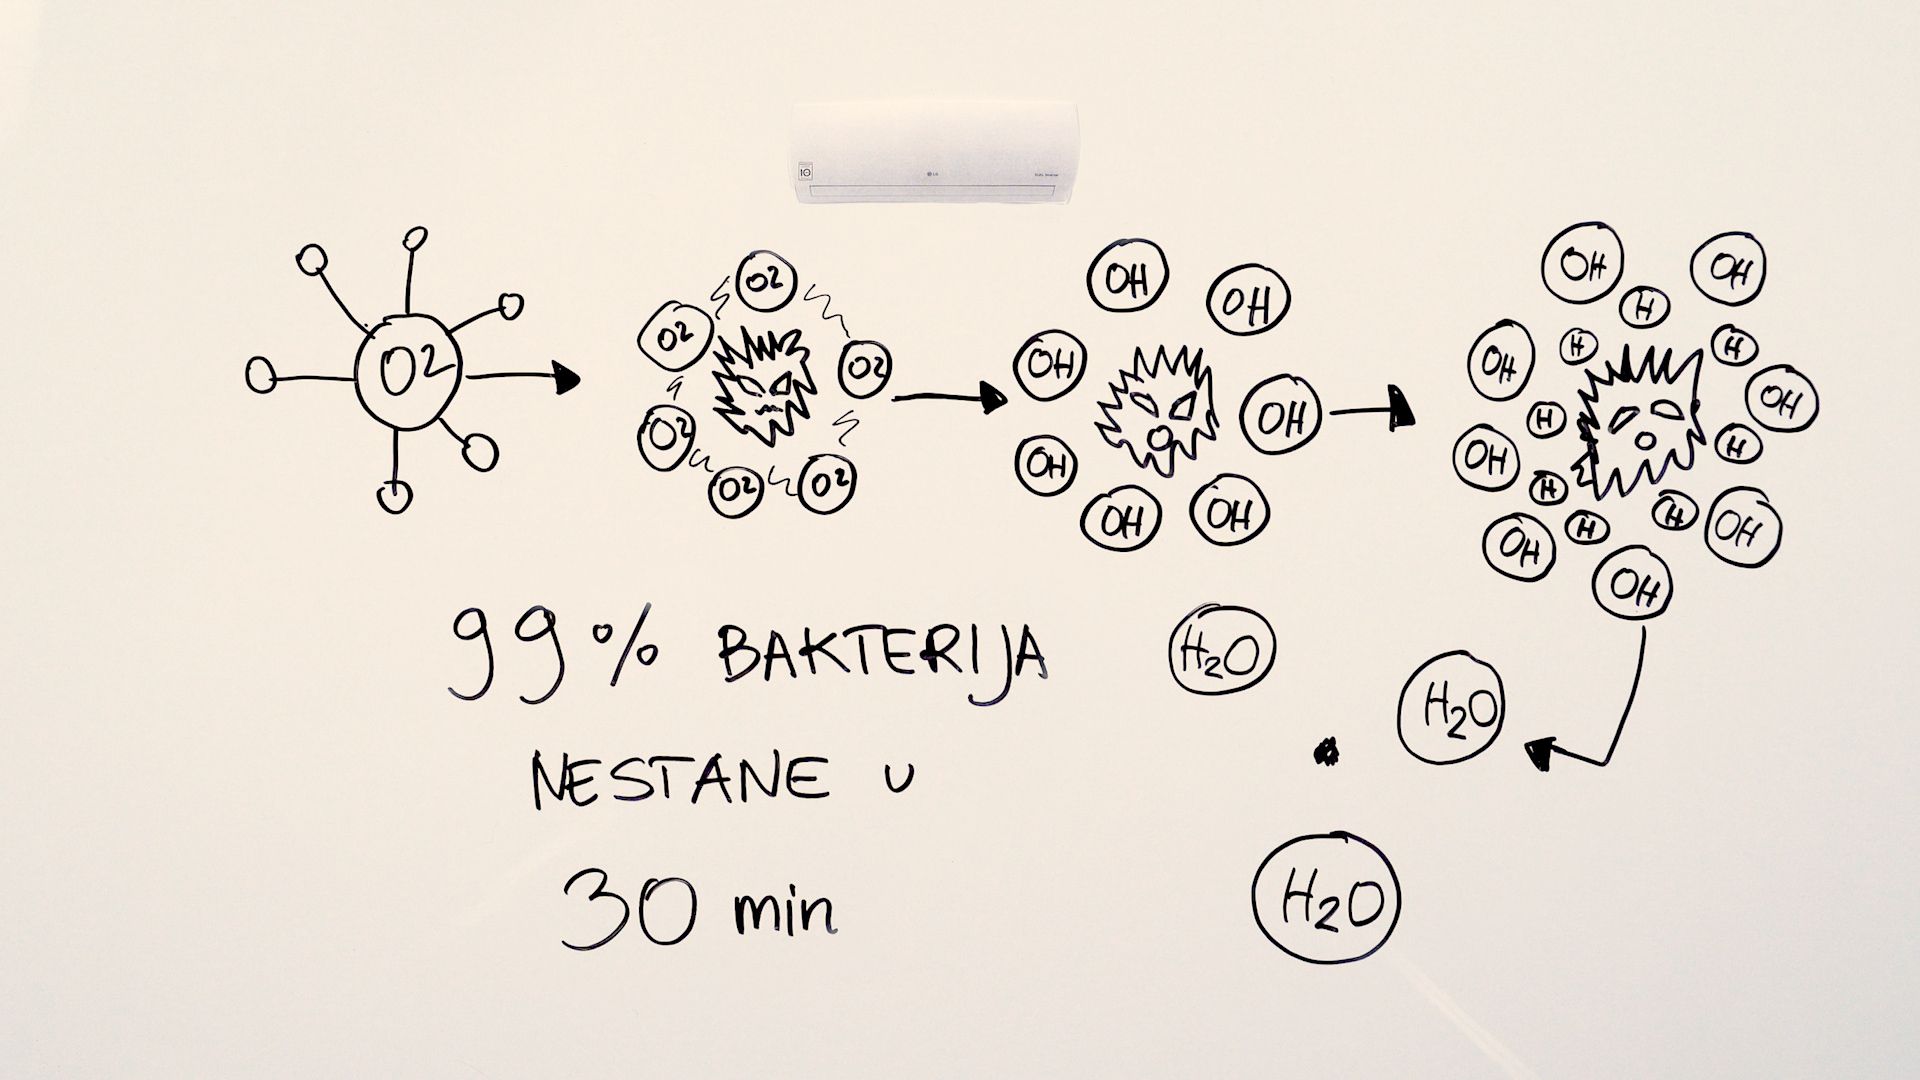 10
LG
DUAL Inverter
O2
O2
O2
O2
O2
O2
O2
OH
OH
OH
OH
OH
OH
OH
OH
OH
H
OH
H
H
OH
H
H
OH
H
H
H
OH
OH
OH
99% BAKTERIJA
NESTANE U
30 min
H2O
H2O
H2O